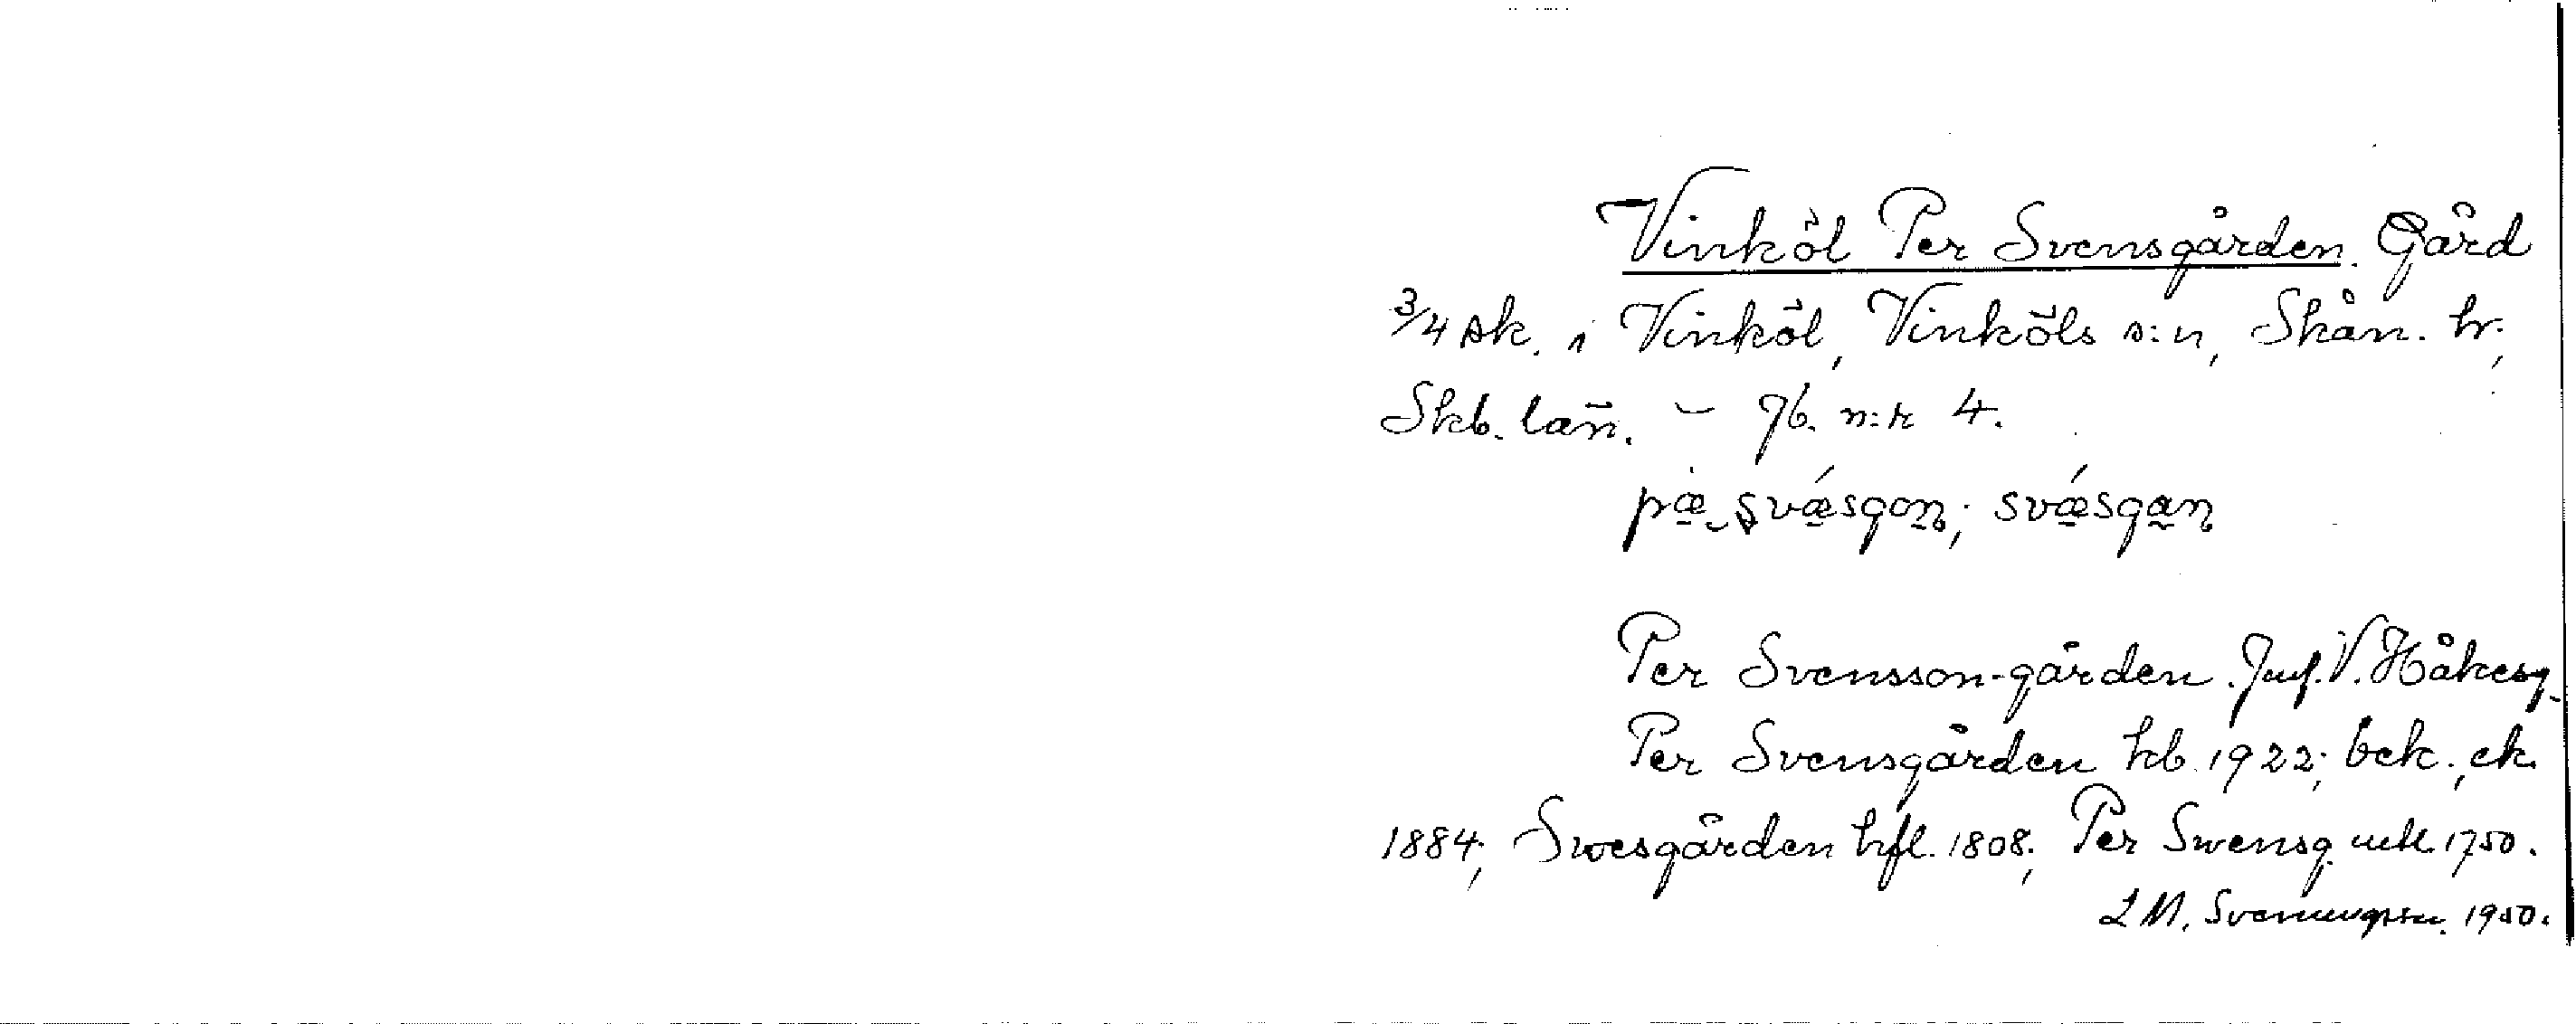 Vinköl Per Svensgården. Gård
3/4 sk. i Vinköl, Vinköls s:n, Skån. hr.,
Skb. län. – Jb. n:r 4.
pæ svǽsgon; svǽsgan
Per Svensson-gården. Jmf. V. Håkesg.
Per Svensgården kb. 1922; bek., ek.
1884; Swesgården hfl. 1808; Per Swensg. mtl. 1750.
L M. Svenungsson. 1950.